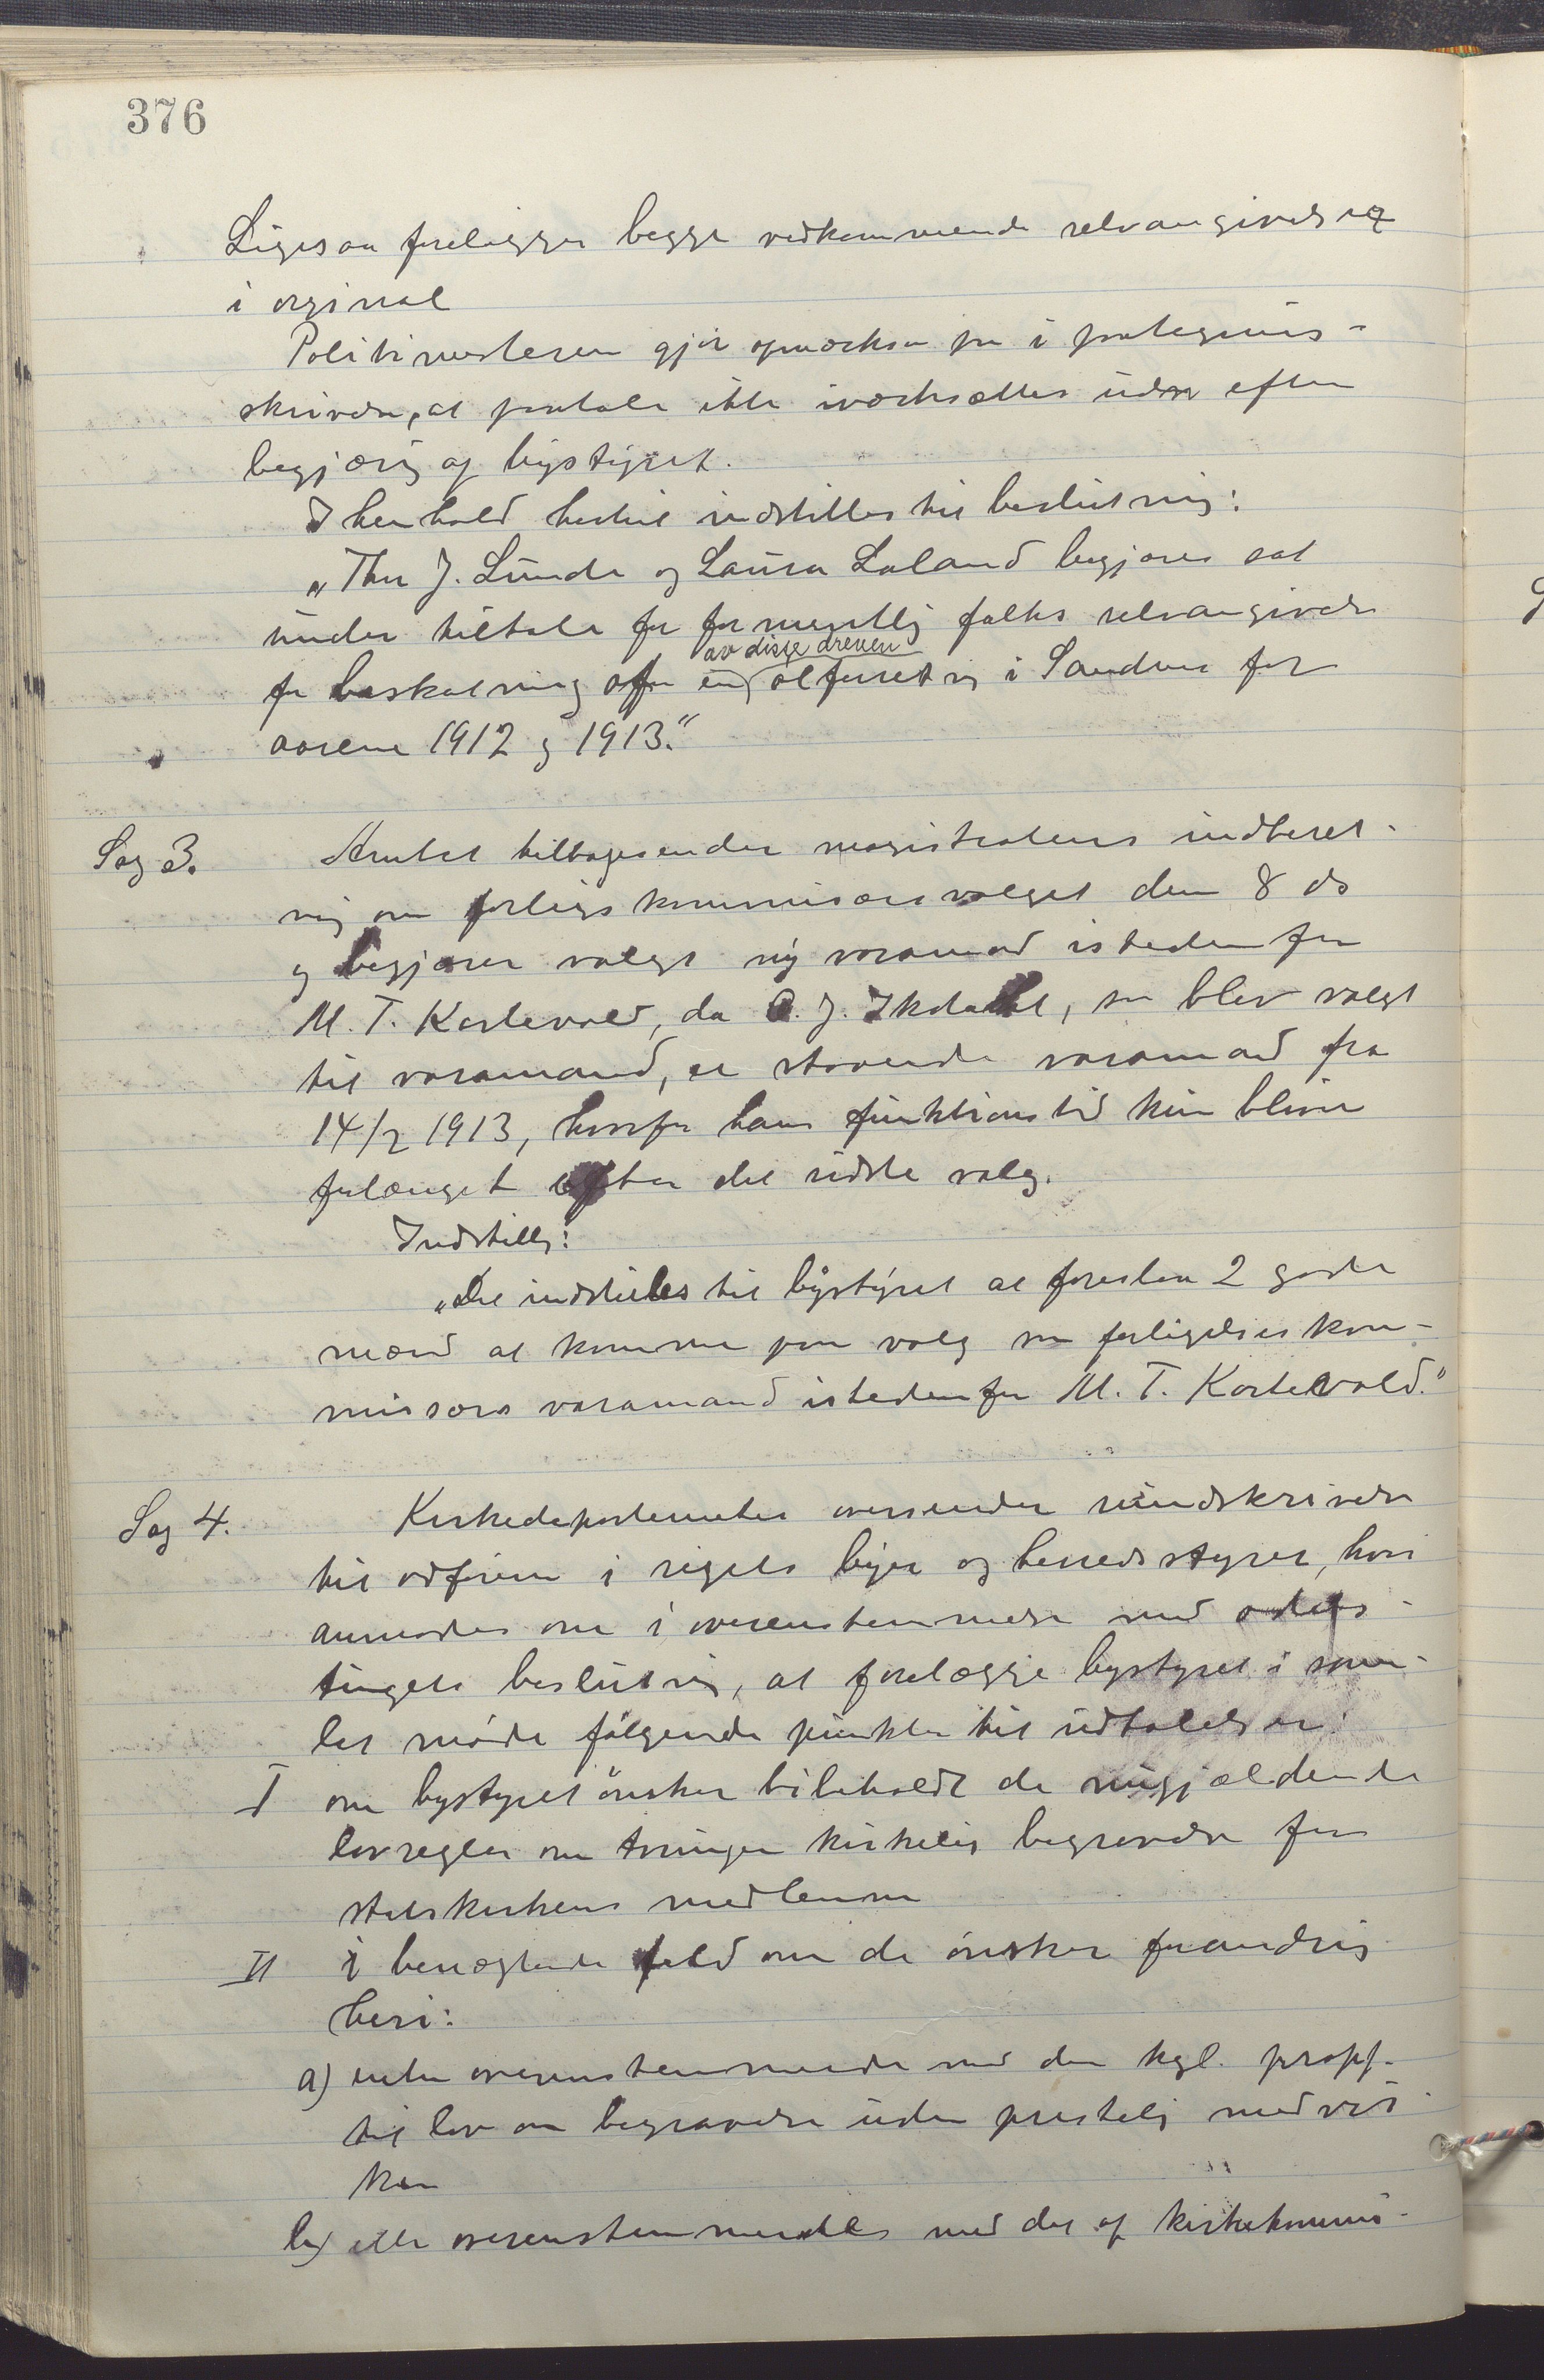 376
Ligesaa foreligger begge vedkommende selvangivelser
i orginal
Politimesteren gjör opmerksom paa i paategnings-
skrivelse, at paatale ikke iværksættes uden efter
begjæring af bystyret.
I henhold hertil indstilles til beslutning:
„Thor J. Lunde og Laura Laland begjæres sat
under tiltale for formentlig falks selvangivelse
av disse dreven
for beskatning af en ölforretng i Sandnes for
aarene 1912 og 1913."
Sag 3. Amtet tilbagesender magistratens indberet-
ning om forligskommisærvalget den 8 ds
og begjærer valgt ny varamand istedenfor
M. T. Kartevold, da O. J. Ikdahl, som blev valgt
til varamand, er staaende varamand fra
14/2 1913, hvorfor hans funktionstid kun bliver
forlænget efter det sidste valg.
Indstillg:
„Det indstilles til bystyret at foreslaa 2 gode
mænd at komme paa valg som forligelseskom-
missærs varamand istedenfor M. T. Kartevold."
Sag 4. Kirkedepartementet oversender rundskrivelse
til ordförere i rigets byer og herredsstyrer, hvori
anmodes om i overenstemmelse med odels-
tingets beslutning, at forelægge bystyret i sam-
let möde fölgende punkter til udtalelser:
I om bystyret önsker bibeholdt de nugjældende
lovregler om tvungen kirkelig begravelse for
statskirkens medlemmer
II i benægtende fald om de önsker forandring
heri:
a) enten overenstemmende med den kgl. propf.
til lov om begravelse uden prestelig medvir
ken
b) eller overenstemmendes med det af kirkekommis-